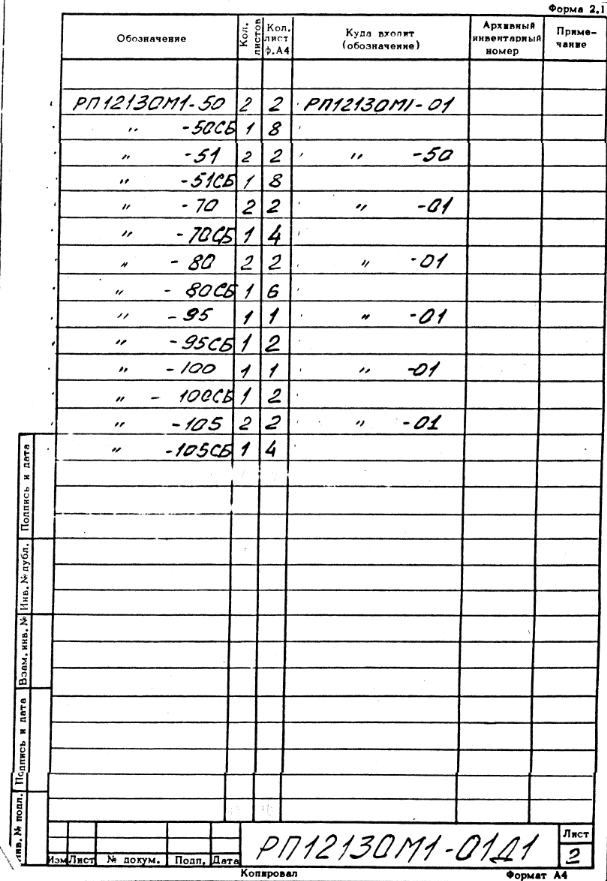 Форма 2.1
Обозначение | Кол. листов | Кол. лист ф.А4 | Куда входит (обозначение) | Архивный инвентарный номер | Примечание
РП12130М1-50 2 2 РП12130М1-01
" -50СБ 1 8
" -51 2 2 " -50
" -51СБ 1 8
" -70 2 2 " -01
" -70СБ 1 4
" -80 2 2 " -01
" -80СБ 1 6
" -95 1 1 " -01
" -95СБ 1 2
" -100 1 1 " -01
" -100СБ 1 2
" -105 2 2 " -01
" -105СБ 1 4
Подпись и дата
Инв. № дубл.
Взам. инв. №
Подпись и дата
Инв. № подл.
Изм Лист № докум. Подп. Дата
РП12130М1-01Д1
Лист
2
Копировал
Формат А4